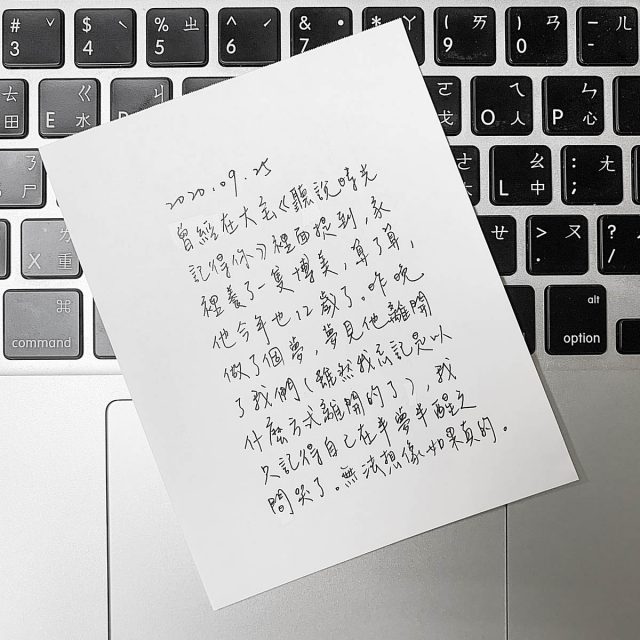 # 3 ˇ
$ 4 ˋ
% 5 ㄓ
^ 6 ˊ
& 7 ˙
* ㄚ
( 9 ㄞ
) 0 ㄢ
- ㄦ
ㄊ 田
E ㄍ 水
ㄐ
ㄛ 戈
O ㄟ 人
P ㄣ 心
ㄋ 尸
L ㄠ 中
: ; ㄤ
X ㄌ 重
ㄝ
> . ㄡ
? / ㄥ
⌘ command
alt option
2020.09.25
曾經在大宝《聽說時光
記得你》裡面提到,家
裡養了一隻博美,算了算,
他今年也12歲了。昨晚
做了個夢,夢見他離開
了我們(雖然我忘記是以
什麼方式離開的了),我
只記得自己在半夢半醒之
間哭了。無法想像如果真的。